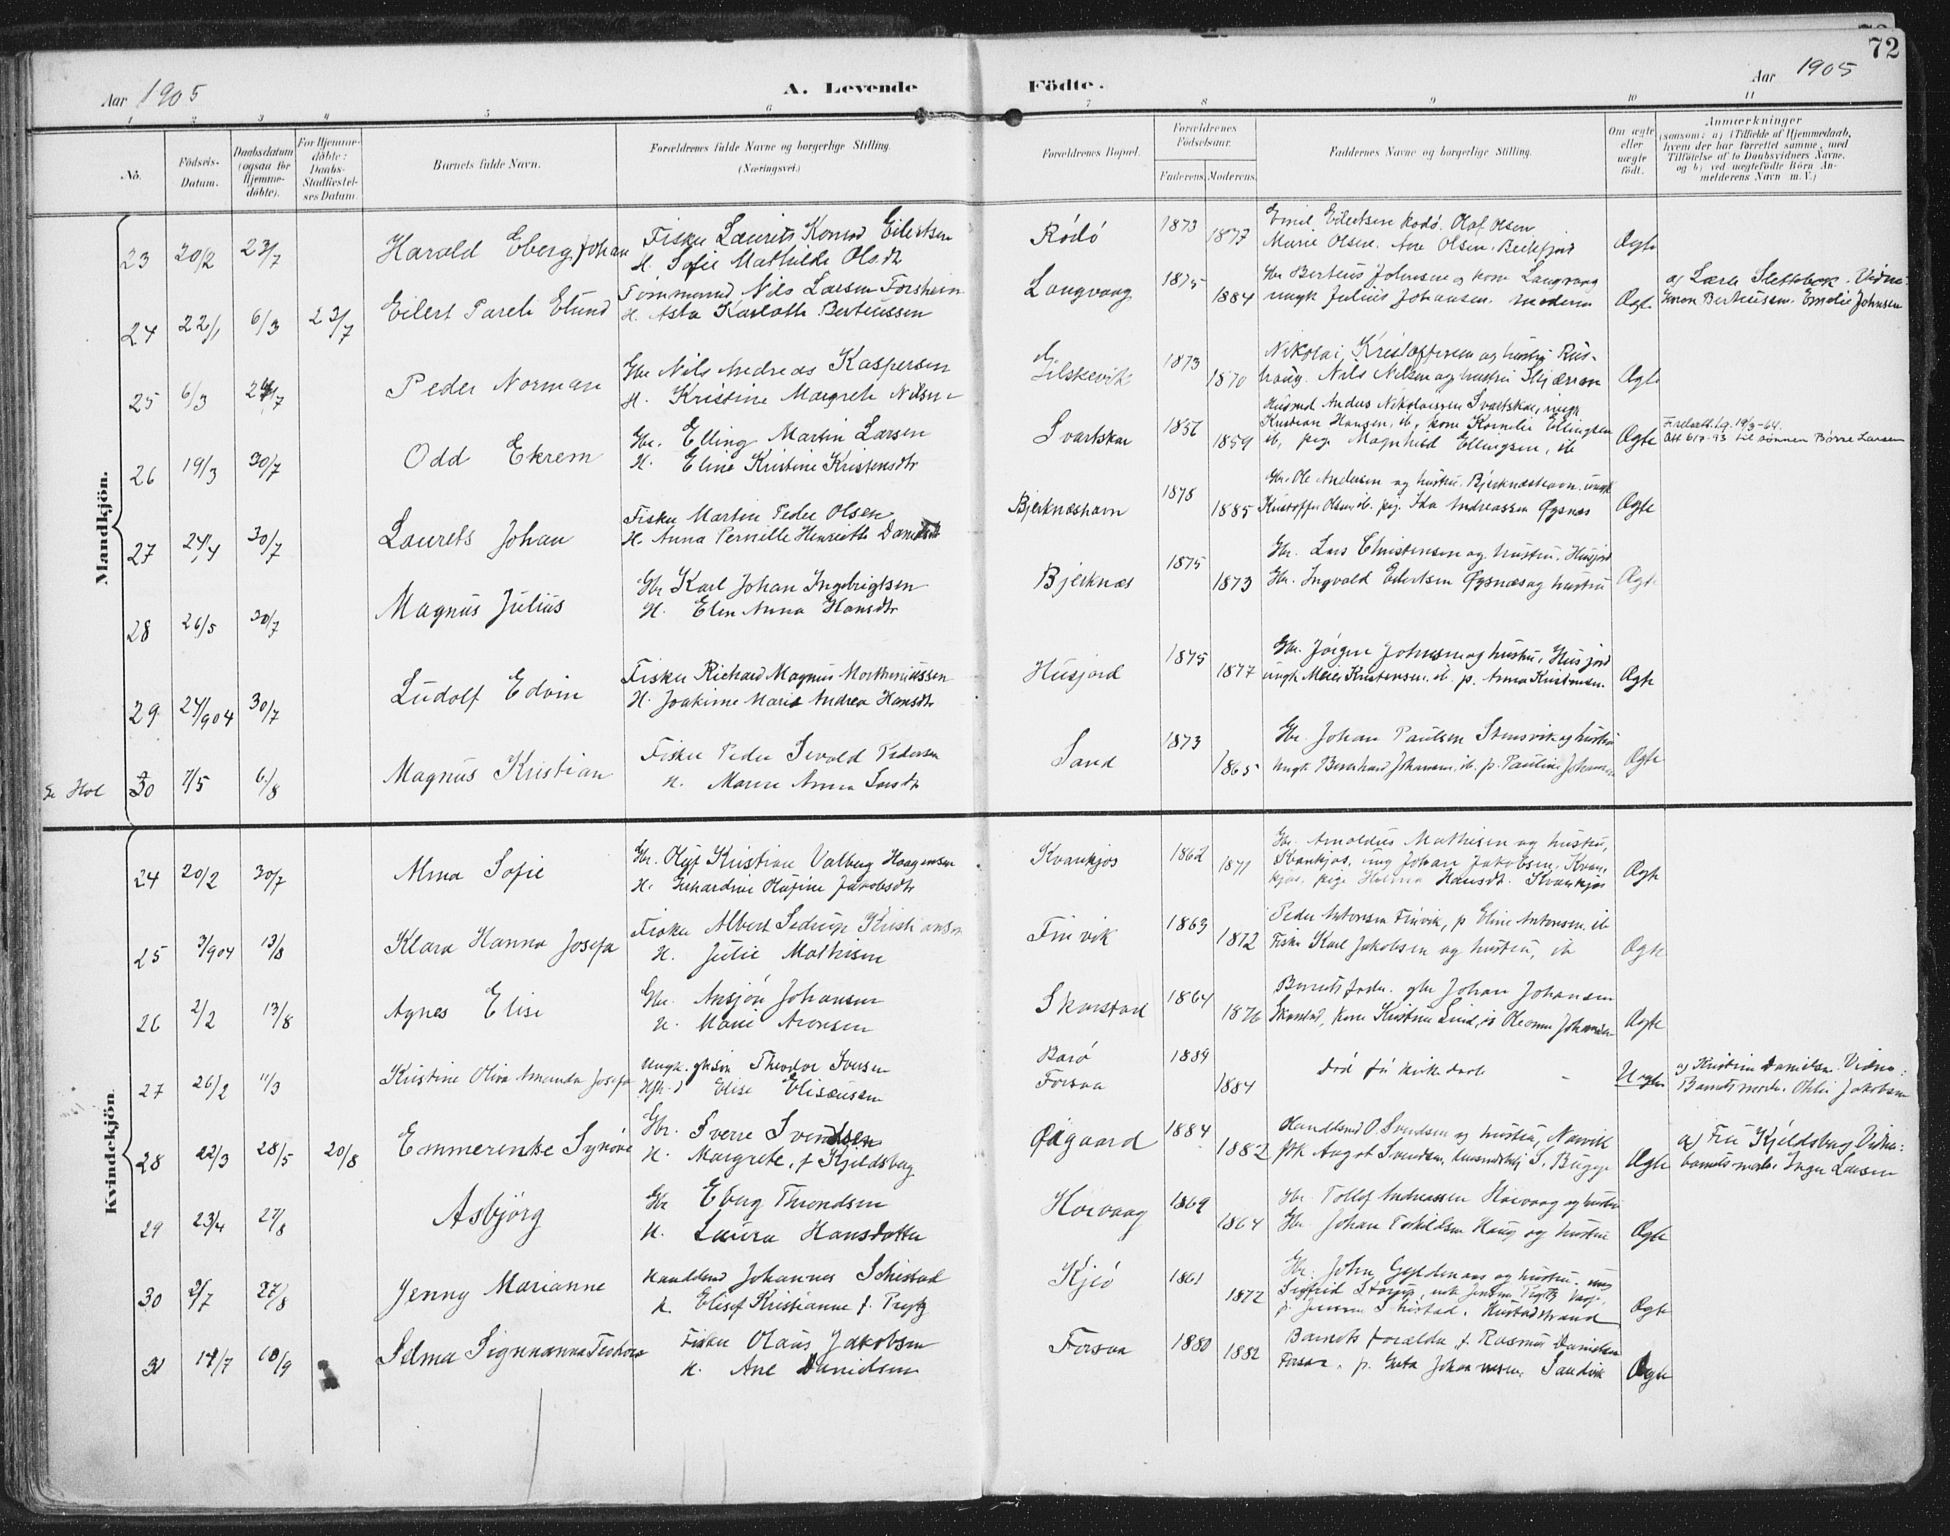 72
Aar 1905
A. Levende Födte.
Aar 1905
1 2 3 4 5 6 7 8 9 10 11
No.
Födsels-Datum.
Daabsdatum (ogsaa for Hjemmedöbte).
For Hjemmedöbte: Daabs-Stadfæstelses Datum.
Barnets fulde Navn.
Forældrenes fulde Navne og borgerlige Stilling. (Næringsvei.)
Forældrenes Bopæl.
Forældrenes Födselsaar.
Faderens. Moderens.
Faddernes Navne og borgerlige Stilling.
Om ægte eller uægte födt.
Anmærkninger
(saasom: a) i Tilfælde af Hjemmedaab, hvem der har forrettet samme, med Tilföielse af to Daabsvidners Navne, og b) ved uægtefödte Börn Anmelderens Navn m. V.)
Mandkjön.
23 20/2 23/7 Harald Eberg Johan
Fisker Laurits Konrad Eilertsen
H. Sofie Mathilde Olsdtr
Rödö 1873 1877
Emil Eilertsen Rödö. Olaf Olsen
Marie Olsen. Ane Olsen. Beikfjord
Ægte
24 22/1 6/3 23/7 Eilert Pareli Elund
Tömmermd Nils Larsen Forsheim
H. Asta Karlotte Berteussen
Langvaag 1875 1884
Gbr Berteus Johnsen og kone Langvaag
ungk Julius Johansen. moderen
Ægte
a) Lærer Slettebak. Vidner:
Simon Berteussen. Emelie Johnsen
25 6/3 24/7 Peder Norman
Gbr Nils Andreas Kaspersen
H. Kristine Margrete Nilsen
Gilskevik 1873 1870
Nikolai Kristoffersen og hustru Rus-
haug. Nils Nilsen og hustru Skjærran
Ægte
26 19/3 30/7 Odd Ekrem
Gbr. Elling Martin Larsen
H. Eline Kristine Kristensdtr
Svartskar 1856 1859
Husmd Anders Nikolaissen Svartskar, ungk
Kristian Hansen, ib, kone Kornelie Ellingsen
ib, pige Magnhild Ellingsen, ib
Ægte
Att 617-93 til sönnen Börre Larsen
27 24/4 30/7 Laurets Johan
Fisker Martin Peder Olsen
H. Anna Pernille Henriette Danielsdtr
Bjerknæshavn 1878 1885
Gbr. Ole Andersen og hustru. Bjerknæshavn. ungk
Kristoffer Olsen ib. pig. Ida Andreassen Öysnæs
Ægte
28 26/5 30/7 Magnus Julius
Gbr Karl Johan Ingebrigtsen
H. Elen Anna Hansdtr
Bjerknæs 1875 1873
Gbr. Lars Christensen og hustru. Husjord
Gbr. Ingvald Eilertsen Öysnæs og hustru
Ægte
29 24/904 30/7 Ludolf Edvin
Fisker Richard Magnus Mortheniussen
H. Joakime Marie Andrea Hansdtr
Husjord 1875 1877
Gbr. Jörgen Johnsen og hustru, Husjord
ungk Meier Kristensen. ib. p. Anna Kristensen.
Ægte
30 7/5 6/8 Magnus Kristian
Fisker Peder Sevald Pedersen
H. Maren Anna Larsdtr
Sand 1873 1865
Gbr. Johan Paulsen Stensvik og hustru
Ungk Bernhard Johansen, ib. p. Pauline Johansen
Ægte
Kvindekjön.
24 20/2 30/7 Alma Sofie
Gbr. Oluf Kristian Valberg Haagensen
H. Gerhardine Olufine Jakobsdtr
Kvankjos 1862 1871
Gbr. Arnoldus Mathisen og hustru,
Kvankjos, ung Johan Jakobsen. Kvan-
kjos, pige Helma Hansdt. Kvankjos
Ægte
25 3/904 13/8 Klara Hanna Josefa
Fisker Albert Sedrup Kristiansen
H. Julie Mathisen
Finvik 1863 1872
Peder Antonsen Finvik, p Eline Antonsen ib
Fisker Karl Jakobsen og hustru, ib
Ægte
26 2/2 13/8 Agnes Elise
Gbr. Ansjön Johansen
H. Marie Aronsen
Skarstad 1864 1876
Barnets fader. gbr Johan Johansen
Skarstad, kone Kristine Lind, ib Oleanna Johansen
Ægte
27 26/2 11/3 Kristine Oliva Amanda Josefa
Ungk. gbrsön Theodor Iversen
Elise Eliseussen
Barö
Forsaa 1884 1884
död för kirkedaab
Uægte
a) Kristine Danielsen. Vidner:
Barnets moder. Jakobsen
28 22/3 28/5 20/8 Emmerentse Synöve
Gbr. Sverre Svendsen
H. Margrete, f Kjeldsberg
Ödgaard 1884 1882
Handelsmd O. Svendsen og hustru, Narvik
frk Aagot Svendsen, S. Bugge
Ægte
a) Fru Kjeldsberg Vidner:
barnets moder. Inger Larsen
29 23/4 27/8 Asbjörg
Gbr Eberg Throndsen
H. Laura Hansdatter
Horvaag 1869 1864
Gbr. Tollef Andreassen Horvaag og hustru
Gbr Johan Torkildsen Haug og hustru
Ægte
30 2/7 27/8 Jenny Marianne
Handelsmd Johannes Schistad
H. Elisef Kristianne f. Prytz
Kjeö 1861 1872
Gbr. John Gyldenaas og hustru. ung
p. Jensen Schistad. Hustadstrand
Ægte
31 14/7 10/9 Selma Signanna Teodora
Fisker Olaus Jakobsen
H. Ane Danielsen
Forsaa 1880 1882
Barnets forældre, f. Rasmus Danielsen
Forsaa, p. Greta Johannesen. Sandvik
Ægte